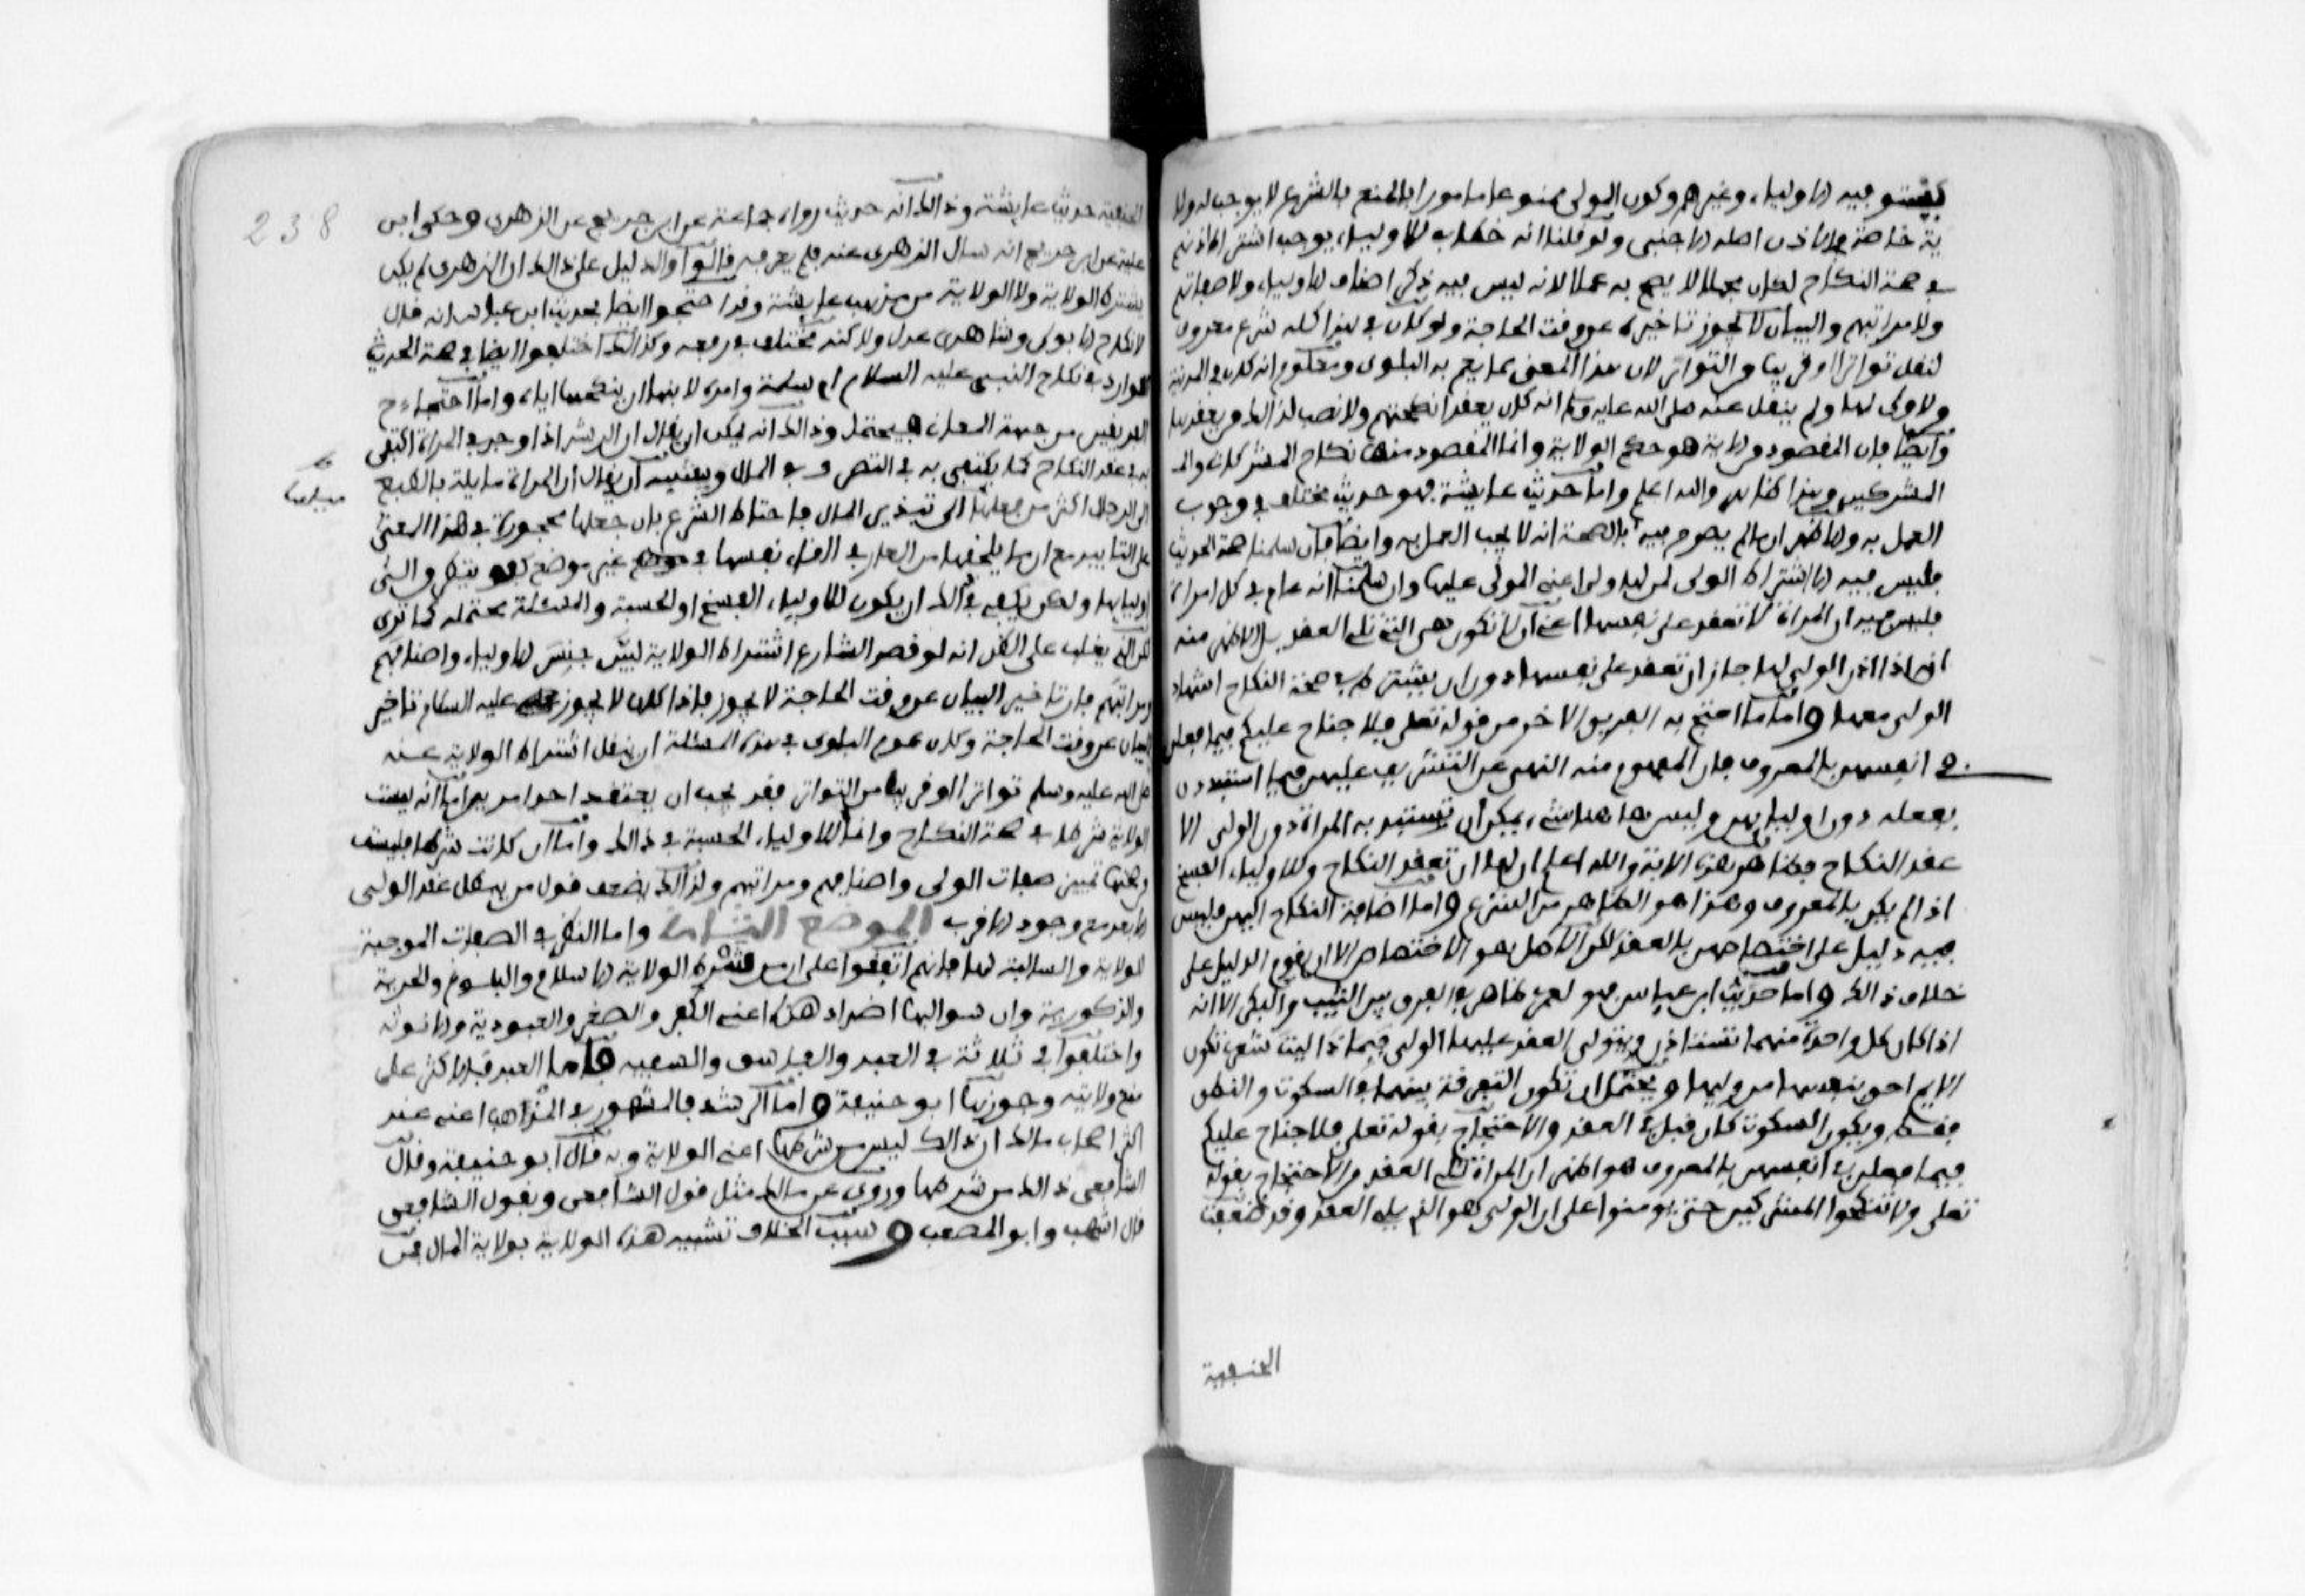 يستوي فيه الاولياء وغيرهم وكون الولى ممنوعا مامورا بالمنع بالشرع لا يوجب له ولا
ية خاصة في الاذن اصله الاجنبى ولو قلنا انه خطاب للاولياء يوجب اشتراط اذنهم
في صحة النكاح لكان مجملا لا يصح به عمل لانه ليس فيه ذكر اصناف الاولياء ولا صفاتهم
ولا مراتبهم والبيان لا يجوز تاخيره عن وقت الحاجة ولو كان في هذا كله شرع معروف
لنقل تواترا او قريبا من التواتر لان هذا المعنى مما يعم به البلوى ومعلوم انه كان في المدينة
من لا ولى لها ولم ينقل عنه صلى الله عليه وسلم انه كان يعقد انكحتهم ولا نصب لذالك من يعقدها
وايضا فان المقصود من الاية هو حكم الولاية وانما المقصود منها نكاح المشركات والـ
المشركين وهذا ظاهر والله اعلم واما حديث عايشة فهو حديث مختلف في وجوب
العمل به والاظهر ان ما لم يصرح فيه بالصحة انه لا يجب العمل به وايضا فان سلمنا صحة الحديث
فليس فيه الا اشتراط الولى لمن لها ولى اعنى المولى عليها وان سلمنا انه عام في كل امراة
فليس فيه ان المراة لا تعقد على نفسها اعنى ان لا تكون هي التي تلى العقد بل الاظهر منه
انه اذا اذن الولى لها جاز ان تعقد على نفسها دون ان يشترط في صحة النكاح اشهاد
الولى معها واما ما احتج به الفريق الاخر من قوله تعلى فلا جناح عليكم فيما فعلن
في انفسهن بالمعروف فان المفهوم منه النهى عن التثريب عليهن فيما استبددن
بفعله دون اوليايهن وليس هاهنا شىء يمكن ان تستبد به المراة دون الولى الا
عقد النكاح فظاهر هذه الاية والله اعلم ان لها ان تعقد النكاح وللاولياء الفسخ
اذا لم يكن بالمعروف وهذا هو الظاهر من الشرع واما اضافة النكاح اليهن فليس
فيه دليل على اختصاصهن بالعقد لكن الاصل هو الاختصاص الا ان يقوم الدليل على
خلاف ذالك واما حديث ابن عباس فهو لعمرى ظاهر في الفرق بين الثيب والبكر الا انه
اذا كان كل واحدة منهما تستاذن ويتولى العقد عليهما الولى فبماذا ليت شعرى تكون
الايم احق بنفسها من وليها ويحتمل ان تكون التفرقة بينهما في السكوت والنطق
فقط ويكون السكوت كاف قبل في العقد والاحتجاج بقوله تعلى فلا جناح عليكم
فيما فعلن في انفسهن بالمعروف هو اظهر ان المراة تلى العقد من الاحتجاج بقوله
تعلى ولا تنكحوا المشركين حتى يومنوا على ان الولى هو الذى يلى العقد وقد ضعفت
الحنفية
238
الحنفية حديث عايشة وذالك انه حديث رواه جماعة عن ابن جريج عن الزهرى وحكى ابن
علية عن ابن جريج انه سال الزهرى عنه فلم يعرفه قالوا والدليل على ذالك ان الزهرى لم يكن
يشترط الولاية ولا الولاية من مذهب عايشة وقد احتجوا ايضا بحديث ابن عباس انه قال
لا نكاح الا بولى وشاهدى عدل ولاكنه مختلف في رفعه وكذالك اختلفوا ايضا في صحة الحديث
الوارد في نكاح النبى عليه السلام ام سلمة وامره لابنها ان ينكحها اياه واما احتجاج
الفريقين من جهة المعانى فيحتمل وذالك انه يمكن ان يقال ان الرشد اذا وجد في المراة اكتفى
به في عقد النكاح كما يكتفى به في التصرف في المال ويشبه ان يقال ان المراة مايلة بالطبع
ميلها
الى الرجال اكثر من ميلها الى تبذير المال فاحتاط الشرع بان جعلها محجورة في هذا المعنى
على التابيد مع ان ما يلحقها من العار في القاء نفسها في غير موضع كفو يتطرق الى
اوليايها ولكن يكفي في ذالك ان يكون للاولياء الفسخ او الحسبة والمسئلة محتملة كما ترى
لكن الذى يغلب على الظن انه لو قصد الشارع اشتراط الولاية لبين جنس الاولياء واصنافهم
ومراتبهم فان تاخير البيان عن وقت الحاجة لا يجوز فاذا كان لا يجوز عليه السلام تاخير
البيان عن وقت الحاجة وكان عموم البلوى في هذه المسئلة ان ينقل اشتراط الولاية عنه
صلى الله عليه وسلم تواترا او قريبا من التواتر فقد يجب ان يعتقد احد امرين اما انه ليست
الولاية شرطا في صحة النكاح وانما للاولياء الحسبة في ذالك واما ان كانت شرطا فليس
من صحتها تمييز صفات الولى واصنافهم ومراتبهم ولذالك يضعف قول من يبطل عقد الولى
الابعد مع وجود الاقرب الموضع الثانى واما النظر في الصفات الموجبة
للولاية والسالبة لها فانهم اتفقوا على ان من شرط الولاية الاسلام والبلوغ والحرية
والذكورية وان سوالبها اضداد هذه اعنى الكفر والصغر والعبودية والانوثة
واختلفوا في ثلاثة في العبد والفاسق والسفيه فاما العبد فالاكثر على
منع ولايته وجوزها ابو حنيفة واما الرشد فالمشهور في المذاهب اعنى عند
اكثر اصحاب مالك ان ذالك ليس من شرطها اعنى الولاية وبه قال ابو حنيفة وقال
الشافعى ذالك من شرطها وروى عن مالك مثل قول الشافعى وبقول الشافعى
قال اشهب وابو المصعب وسبب الخلاف تشبيه هذه الولاية بولاية المال فمن